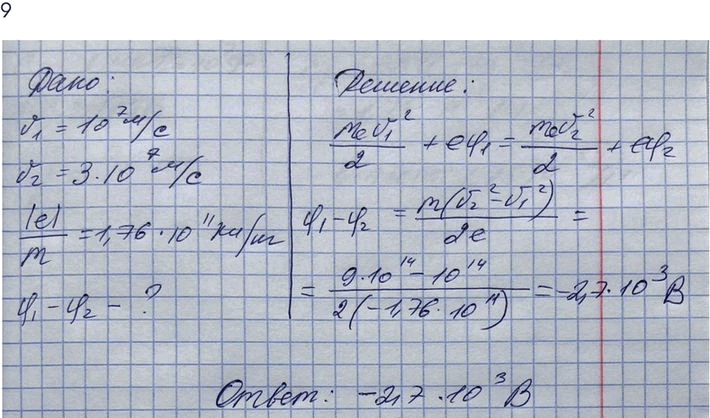 9
Дано:
v₁ = 10⁷ м/с
v₂ = 3·10⁷ м/с
|e|/m = 1,76·10¹¹ Кл/кг
φ₁ – φ₂ – ?
Решение:
mₑv₁²/2 + eφ₁ = mₑv₂²/2 + eφ₂
φ₁ – φ₂ = m(v₂² – v₁²)/2e =
= 9·10¹⁴ – 10¹⁴/2(–1,76·10¹¹) = –2,7·10³ В
Ответ: –2,7·10³ В